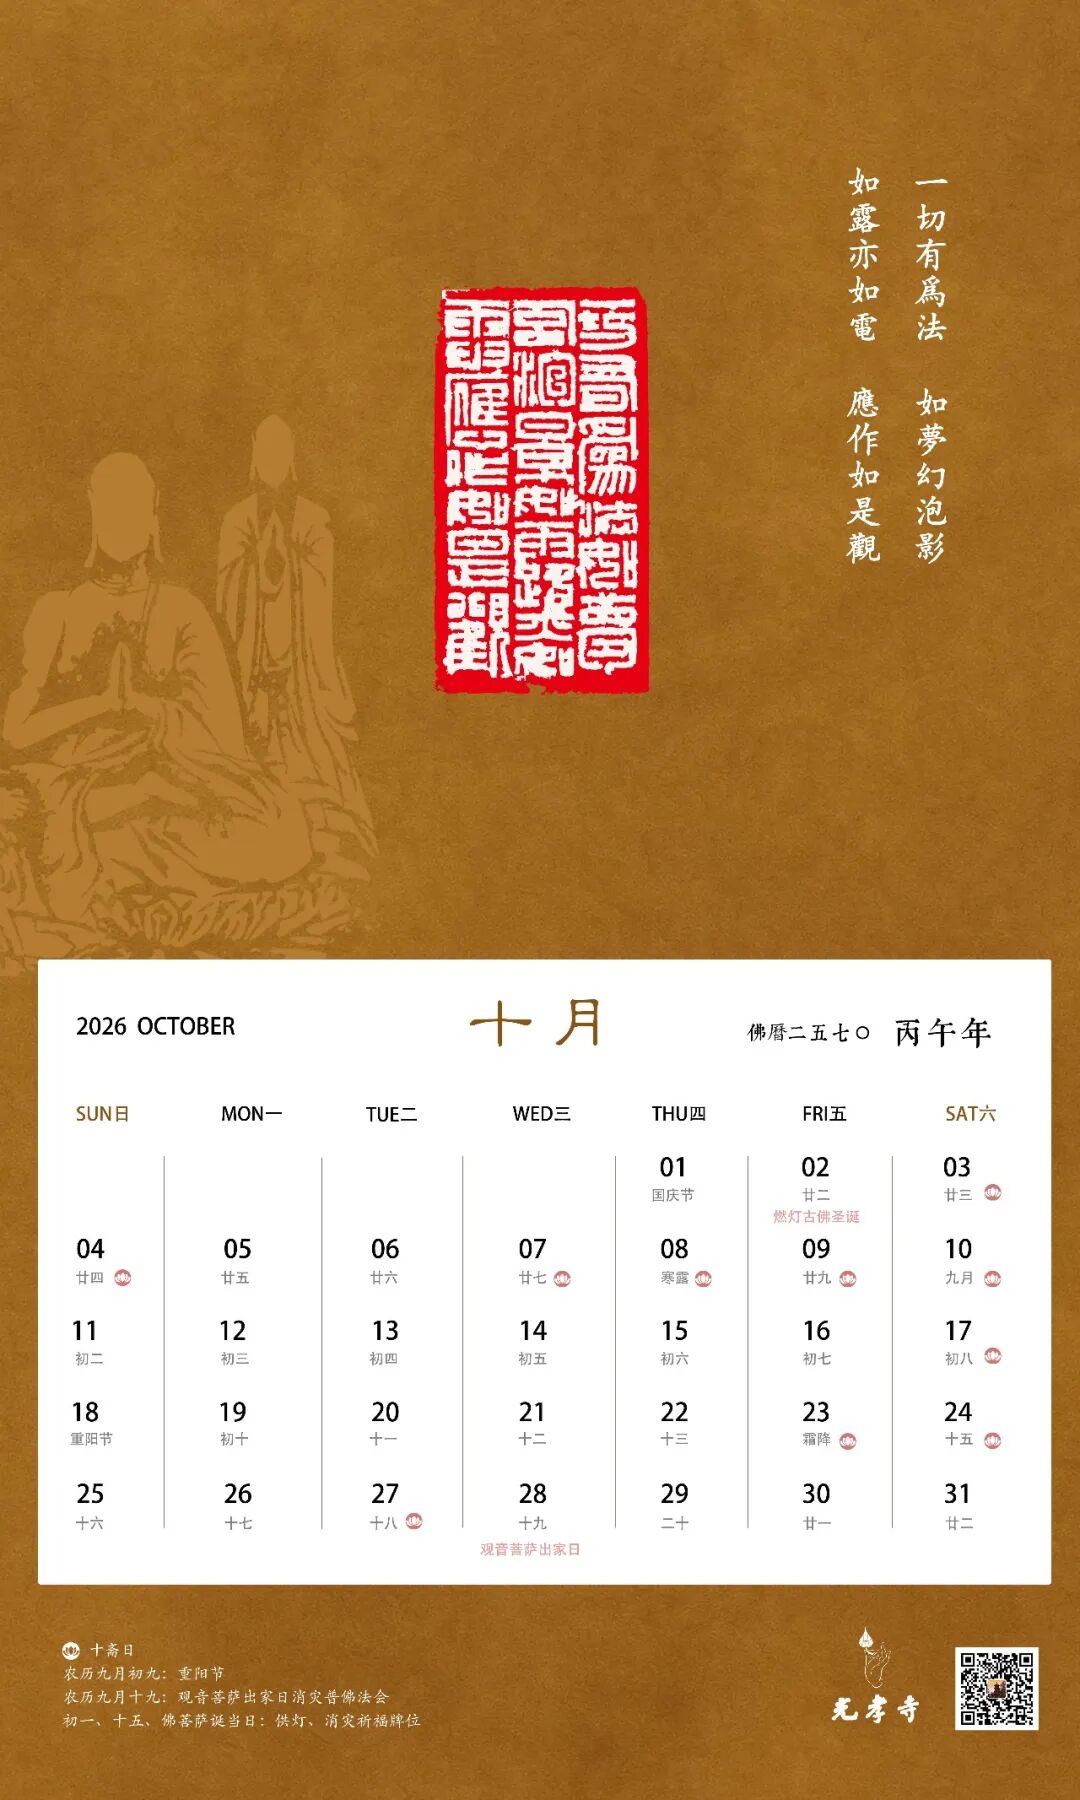 一切有爲法　如夢幻泡影
如露亦如電　應作如是觀
2026 OCTOBER
十月
佛曆二五七〇 丙午年
SUN日 MON一 TUE二 WED三 THU四 FRI五 SAT六
01 02 03
国庆节 廿二 廿三
燃灯古佛圣诞
04 05 06 07 08 09 10
廿四 廿五 廿六 廿七 寒露 廿九 九月
11 12 13 14 15 16 17
初二 初三 初四 初五 初六 初七 初八
18 19 20 21 22 23 24
重阳节 初十 十一 十二 十三 霜降 十五
25 26 27 28 29 30 31
十六 十七 十八 十九 二十 廿一 廿二
观音菩萨出家日
十斋日
农历九月初九：重阳节
农历九月十九：观音菩萨出家日消灾普佛法会
初一、十五、佛菩萨诞当日：供灯、消灾祈福牌位
光孝寺